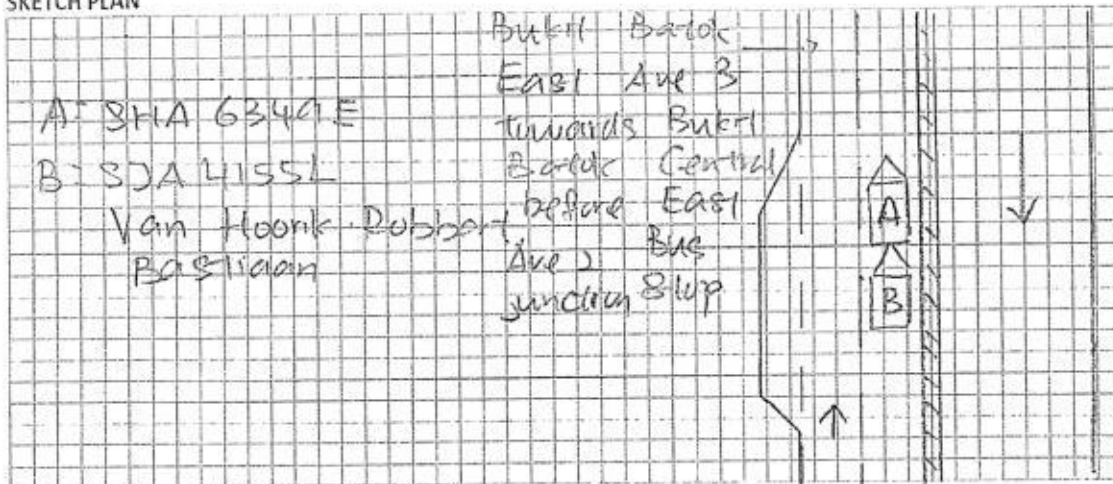 SKETCH PLAN
A: SHA 6349E
B: SJA 4155L
Van Hoorik Robbert
Bastiaan
Bukit Batok
East Ave 3
towards Bukit
Batok Central
before East
Ave 2
junction
Bus
Stop
A
B